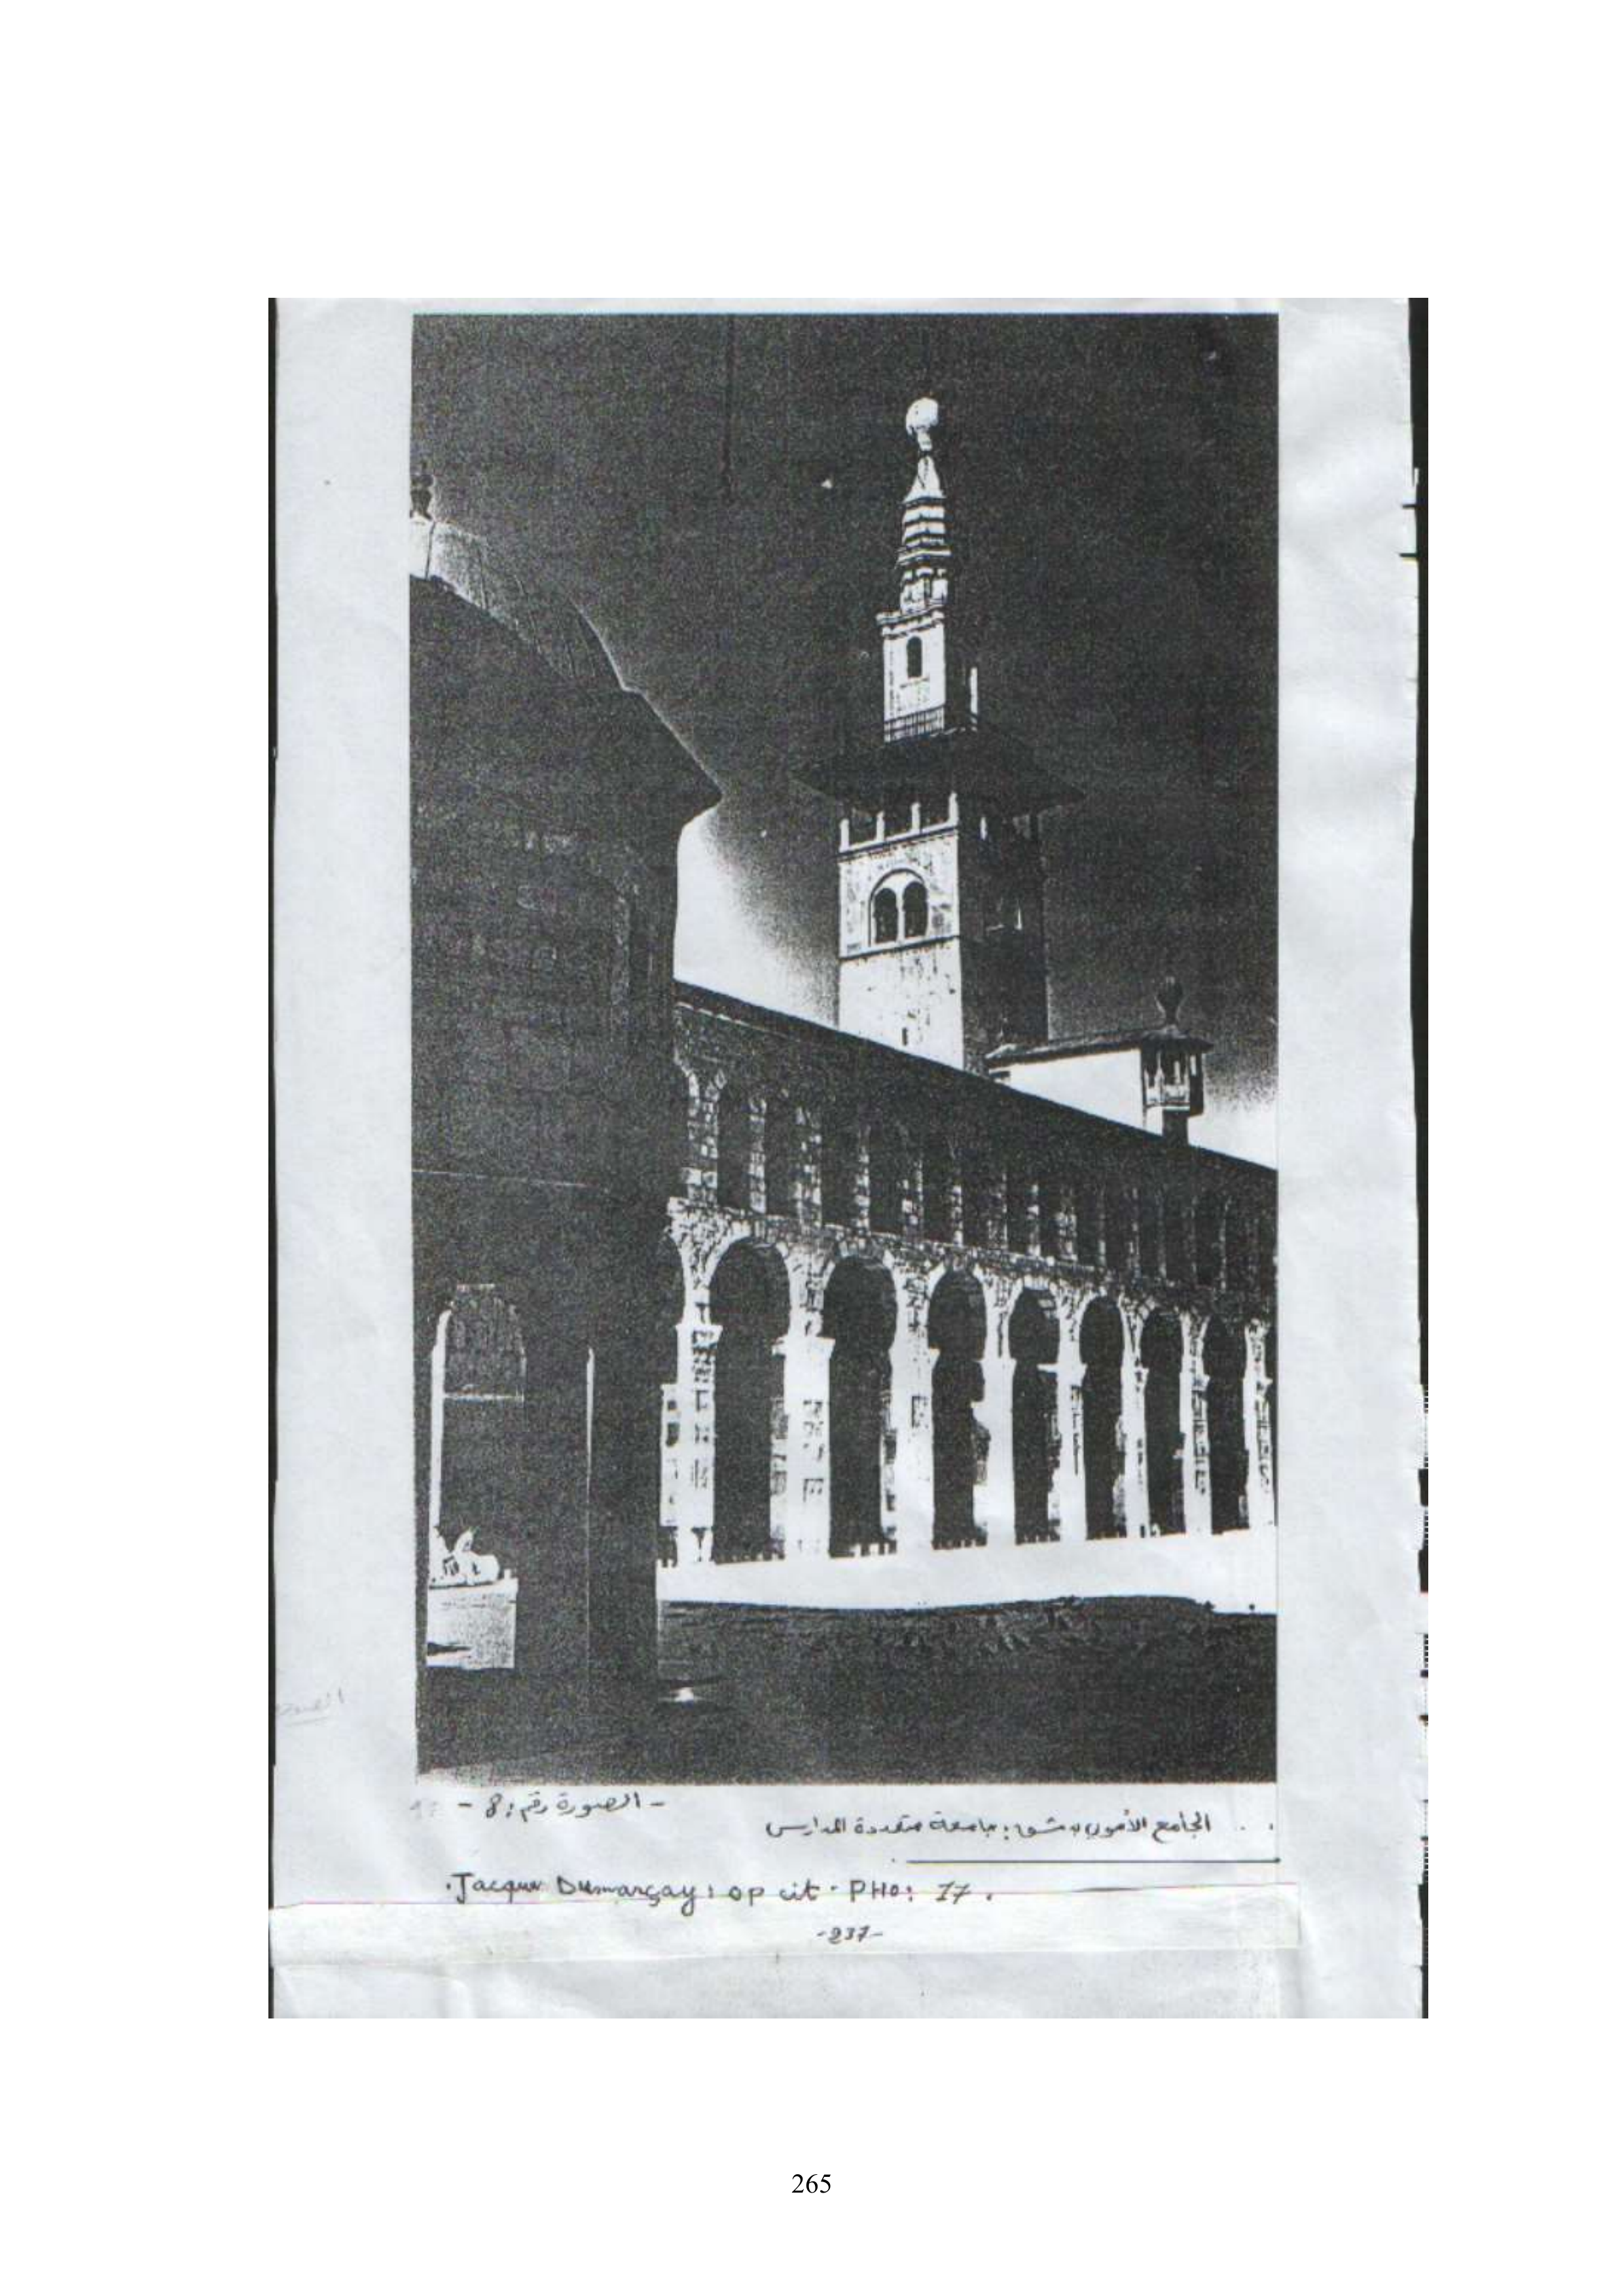 - الصورة رقم: 8 -
الجامع الأموي بدمشق: جامعة متعددة المدارس
.Jacques Dumarçay: op cit. PHO: 17.
-237-
265